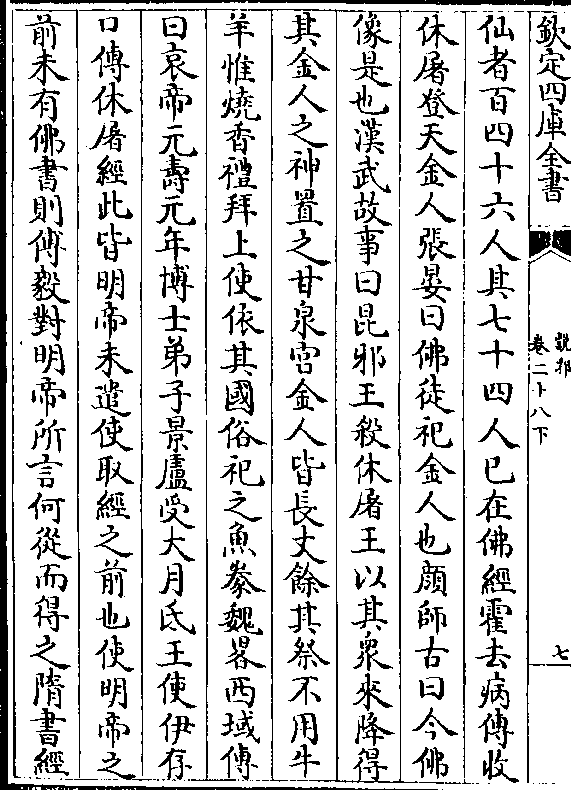 欽定四庫全書
說郛
卷二十八下
七
仙者百四十六人其七十四人已在佛經霍去病傳收
休屠登天金人張晏曰佛徒祀金人也顔師古曰今佛
像是也漢武故事曰昆邪王殺休屠王以其衆來降得
其金人之神置之甘泉宫金人皆長丈餘其祭不用牛
羊惟燒香禮拜上使依其國俗祀之魚豢魏畧西域傳
曰哀帝元壽元年博士弟子景廬受大月氏王使伊存
口傳休屠經此皆明帝未遣使取經之前也使明帝之
前未有佛書則傅毅對明帝所言何從而得之隋書經